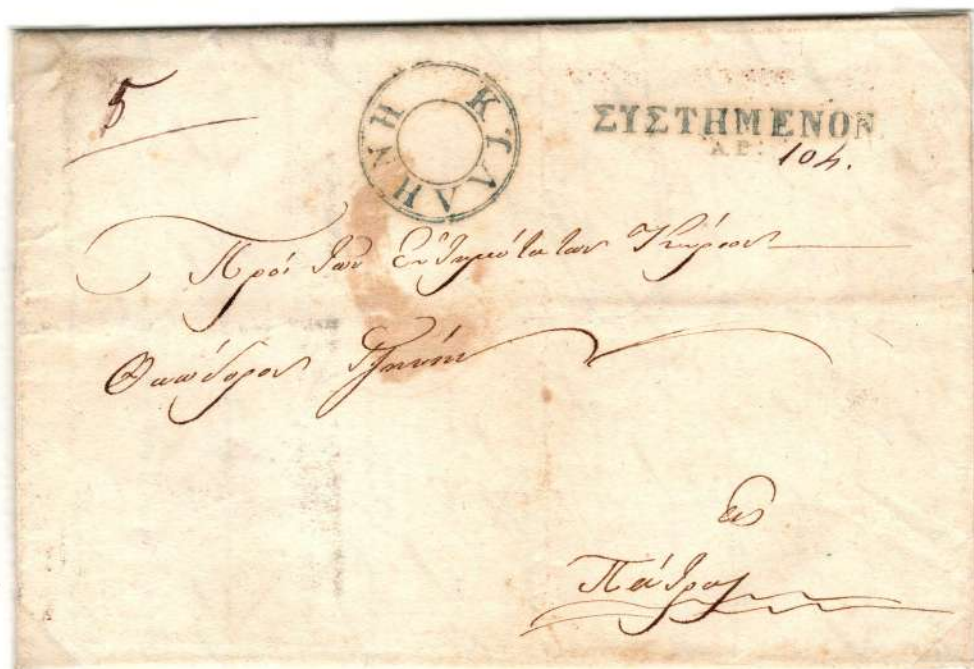 5
ΚΥΛΛΗΝΗ
ΣΥΣΤΗΜΕΝΟΝ
ΑΡ: 104.
Πρὸς τὸν Ἐντιμότατον Κύριον
Θεόδορον
εἰς
Πάτρας